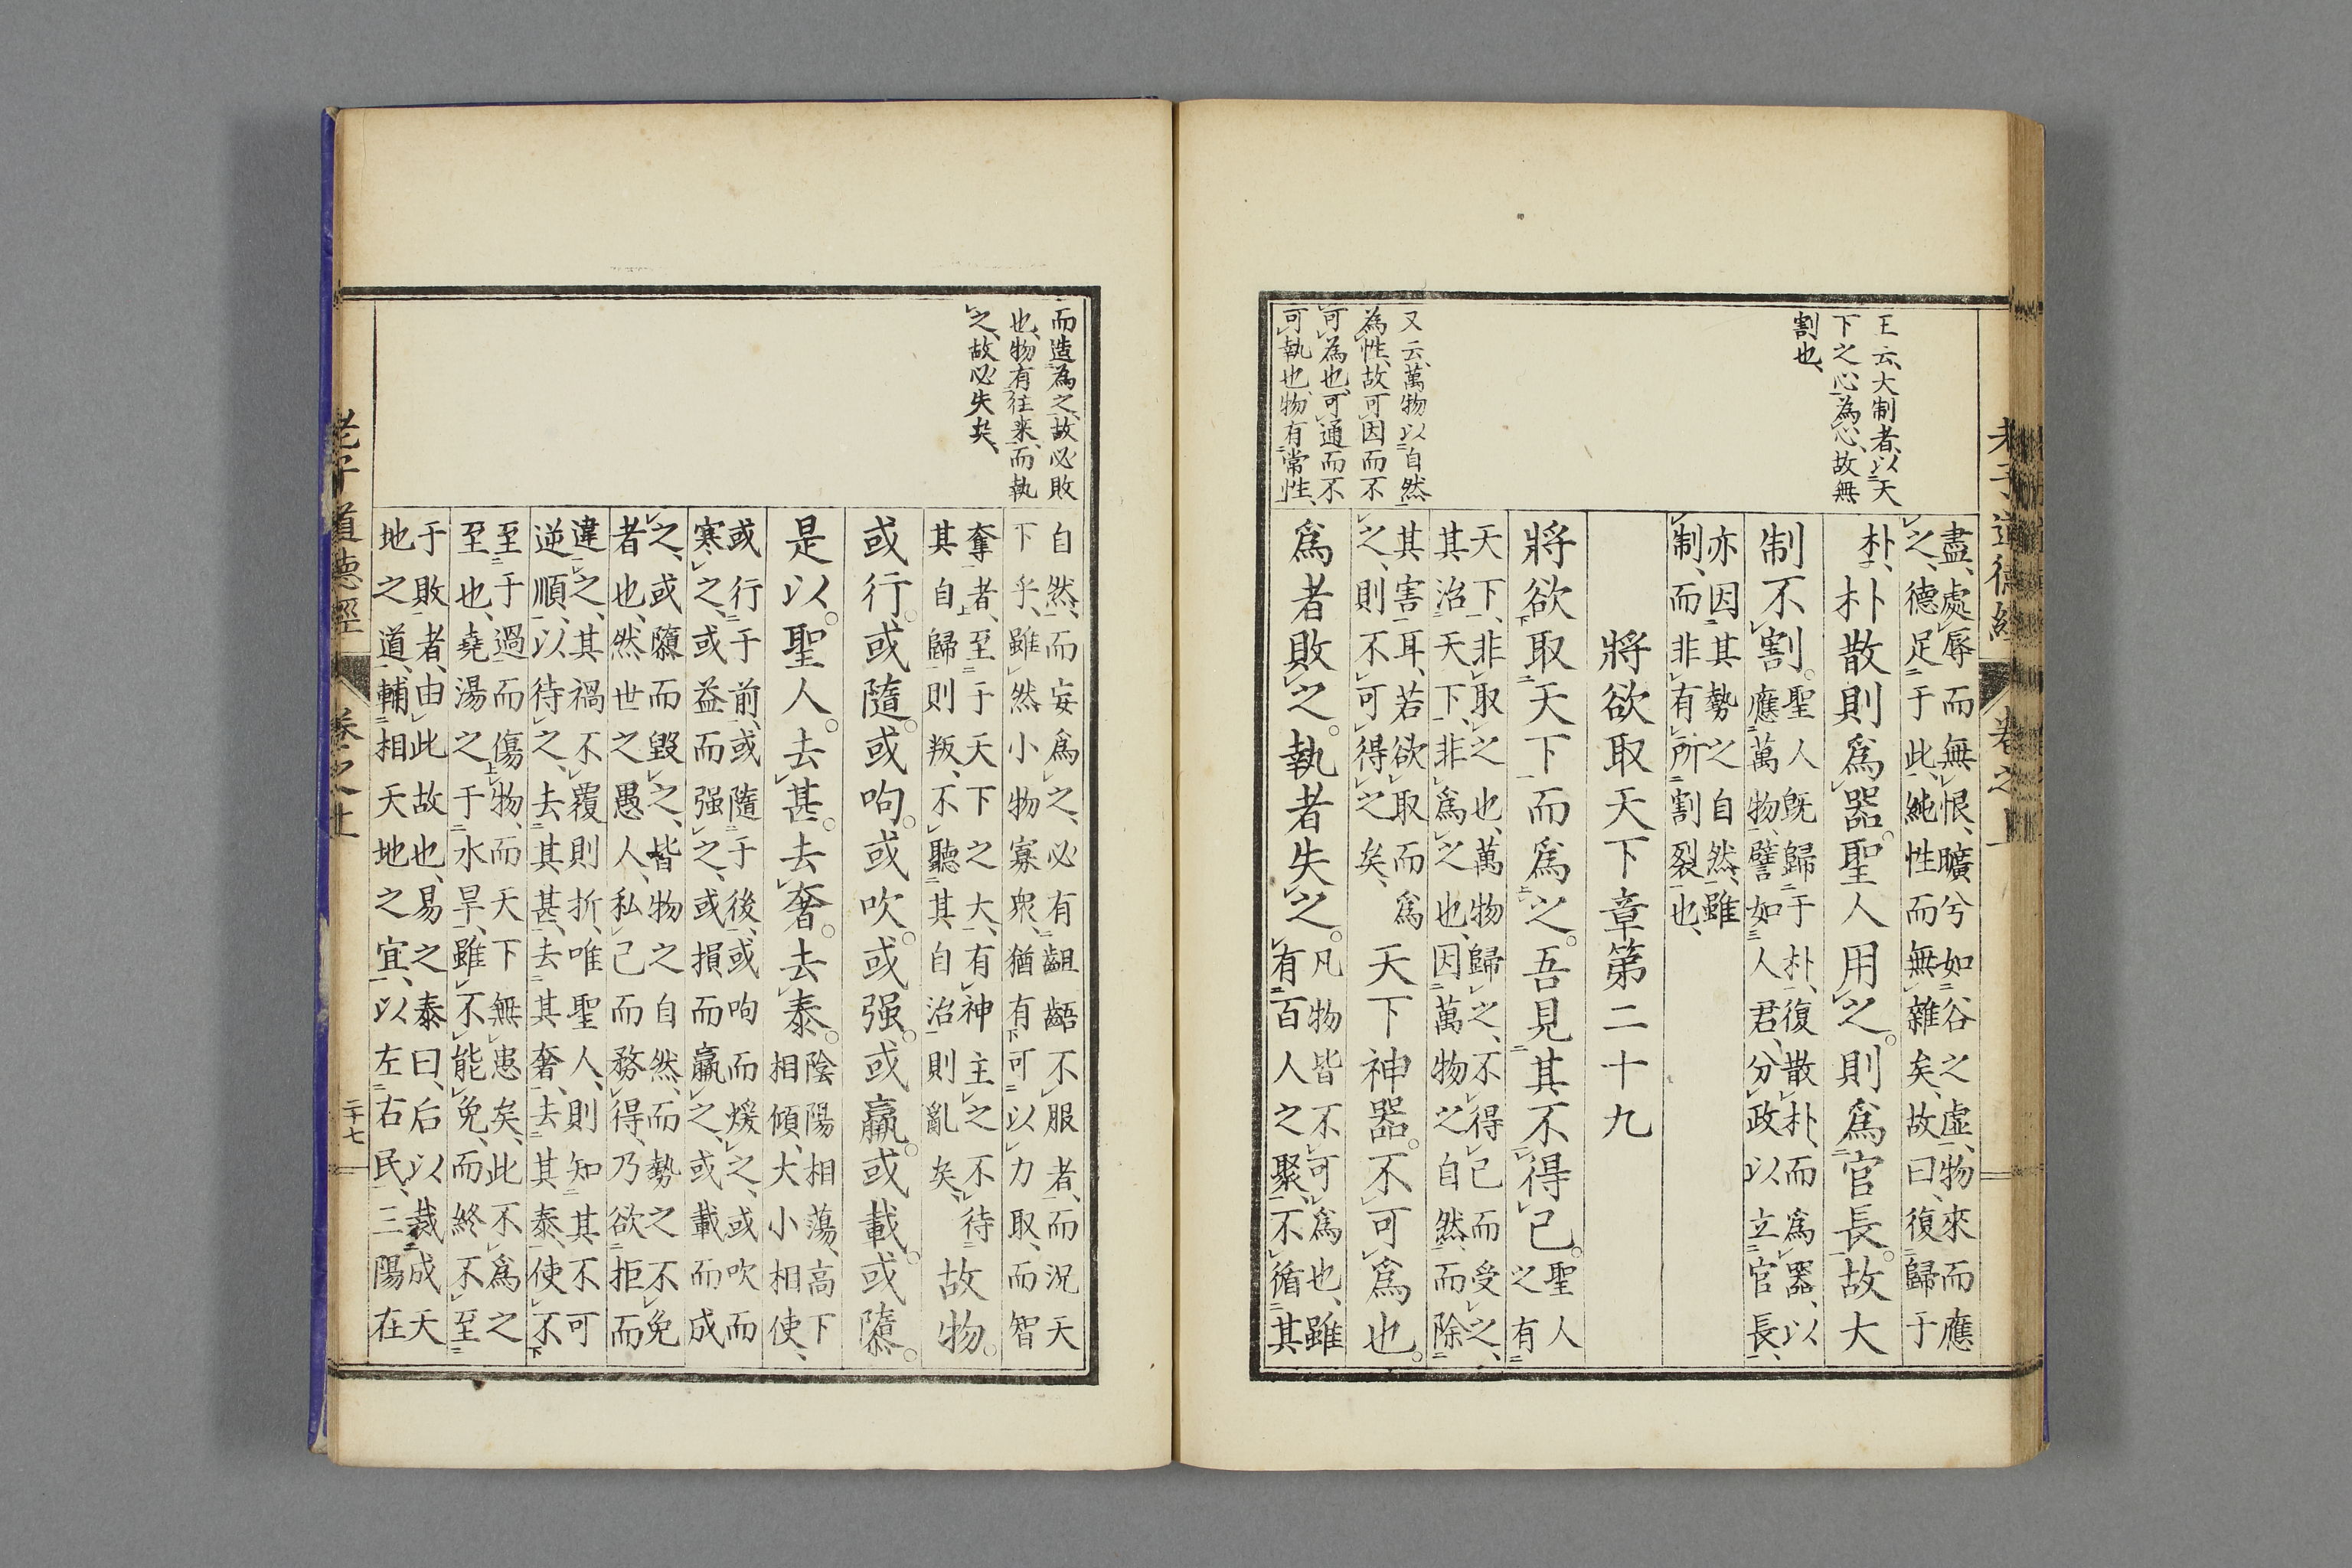 老子道德經 卷之上
王云、大制者、以天
下之心、爲心、故無
割也、
又云、萬物以自然
爲性、故可因而不
可爲也、可通而不
可執也、物有常性、
盡、處辱而無恨、曠兮如谷之虛、物來而應
之、德足于此、純性而無雜矣、故曰、復歸于
朴、朴散則爲器。聖人用之。則爲官長。故大
制不割。聖人既歸于朴、復散朴、而爲器、以
應萬物、譬如人君、分政以立官長、
亦因其勢之自然、雖
制、而非有所割裂也、
將欲取天下章第二十九
將欲取天下而爲之。吾見其不得已。聖人
之有
天下、非取之也、萬物歸之、不得已而受之、
其治天下、非爲之也、因萬物之自然、而除
其害耳、若欲取而爲
之、則不可得之矣、天下神器。不可爲也。
爲者敗之。執者失之。凡物皆不可爲也、雖
有百人之聚、不循其
而造爲之、故必敗
也、物有往来、而執
之、故必失矣、
自然、而妄爲之、必有齟齬不服者、而況天
下乎、雖然小物寡衆、猶有可以力取、而智
奪者、至于天下之大、有神主之、不待
其自歸則叛、不聽其自治則亂矣、故物。
或行。或隨。或呴。或吹。或强。或羸。或載。或隳。
是以。聖人。去甚。去奢。去泰。陰陽相蕩、高下
相傾、大小相使、
或行于前、或隨于後、或呴而煖之、或吹而
寒之、或益而强之、或損而羸之、或載而成
之、或隳而毀之、皆物之自然、而勢之不免
者也、然世之愚人、私己而務得、乃欲拒而
違之、其禍不覆則折、唯聖人、則知其不可
逆順、以待之、去其甚、去其奢、去其泰、使不
至于過而傷物、而天下無患矣、此不爲之
至也、堯湯之于水旱、雖不能免、而終不至
于敗者、由此故也、易之泰曰、后以裁成天
地之道、輔相天地之宜、以左右民、三陽在
老子道德經 卷之上 二十七